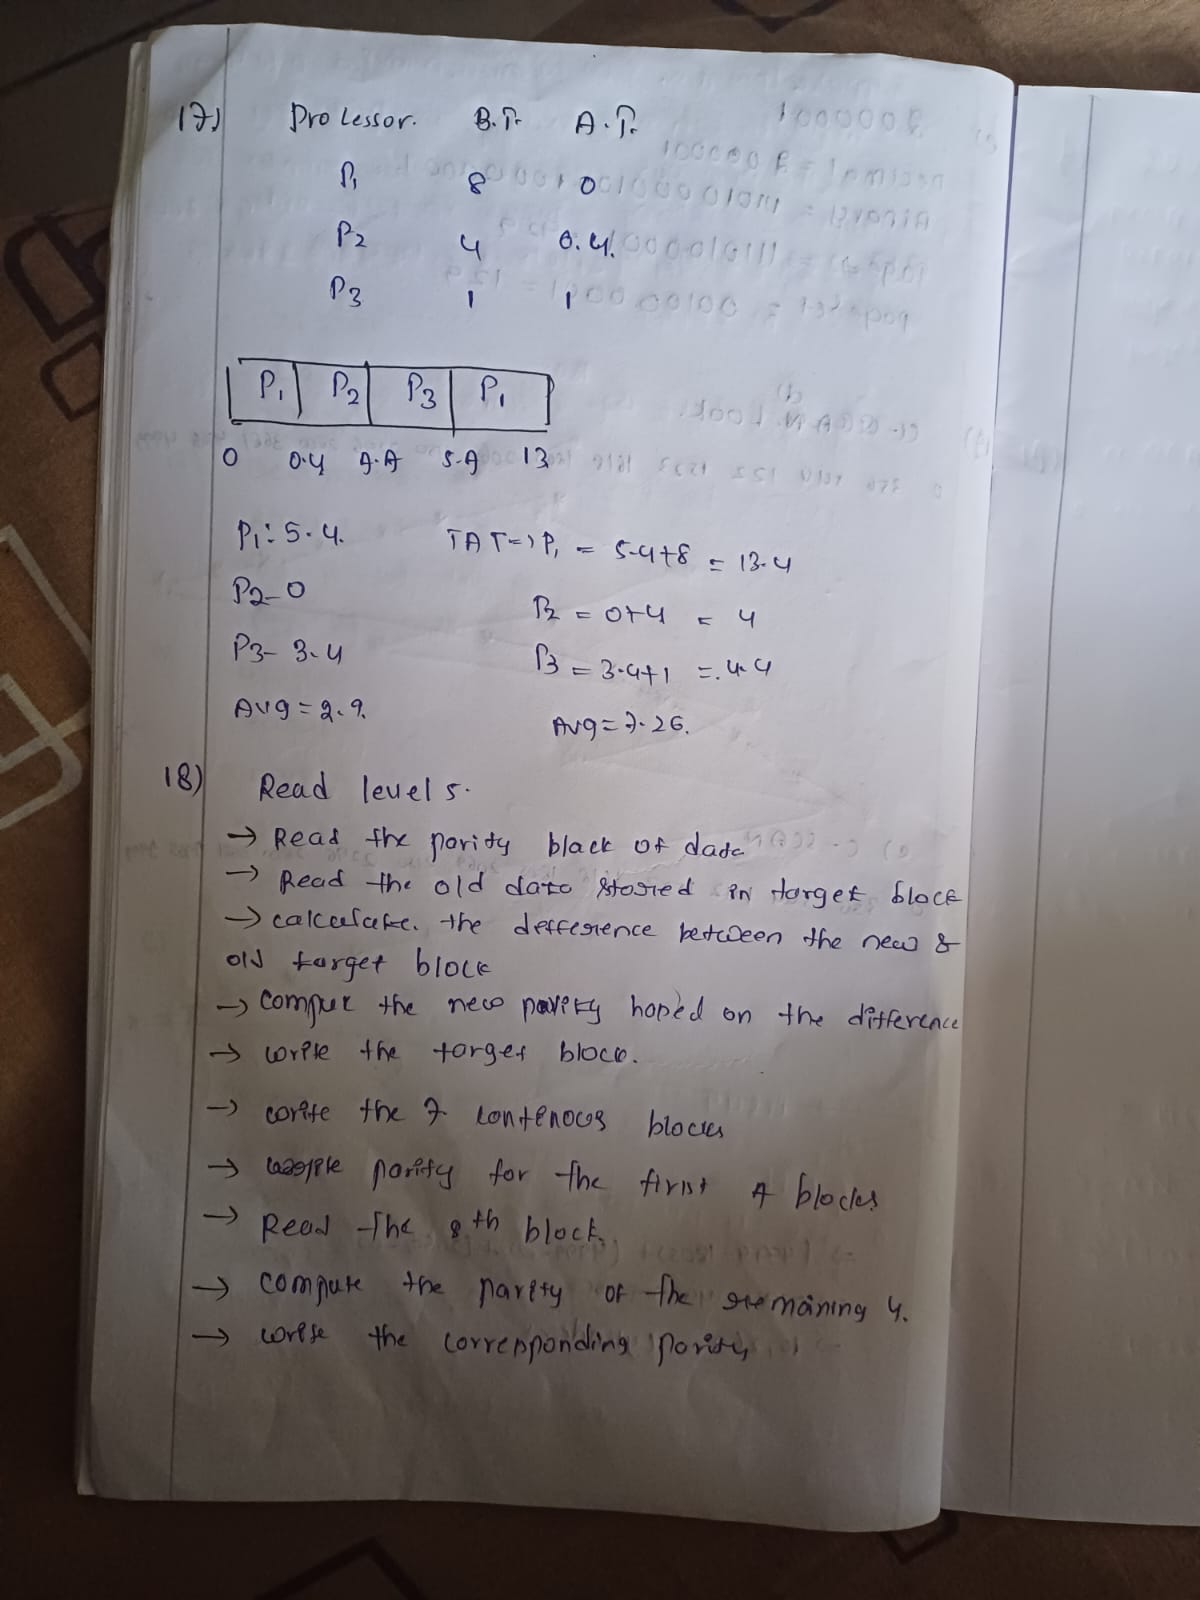 17) Prolessor. B.T. A.T.
P1 8 0
P2 4 0.4.
P3 1 1
P1 P2 P3 P1
0 0.4 4.4 5.4 13
P1: 5.4. TAT=> P1 = 5.4+8 = 13.4
P2-0 P2 = 0+4 = 4
P3- 3.4 P3 = 3.4+1 =.4.4
Avg = 2.9. Avg = 7.26.
18) Read level 5.
→ Read the parity black of data
→ Read the old data stored in target block
→ calculate. the defference between the new &
old target block
→ Comput the new parity hoped on the difference
→ write the target block.
→ write the 7 contenous blocks
→ parity for the first 4 blocks
→ Read the 8th block.
→ compute the parity of the remaining 4.
→ write the corresponding parity